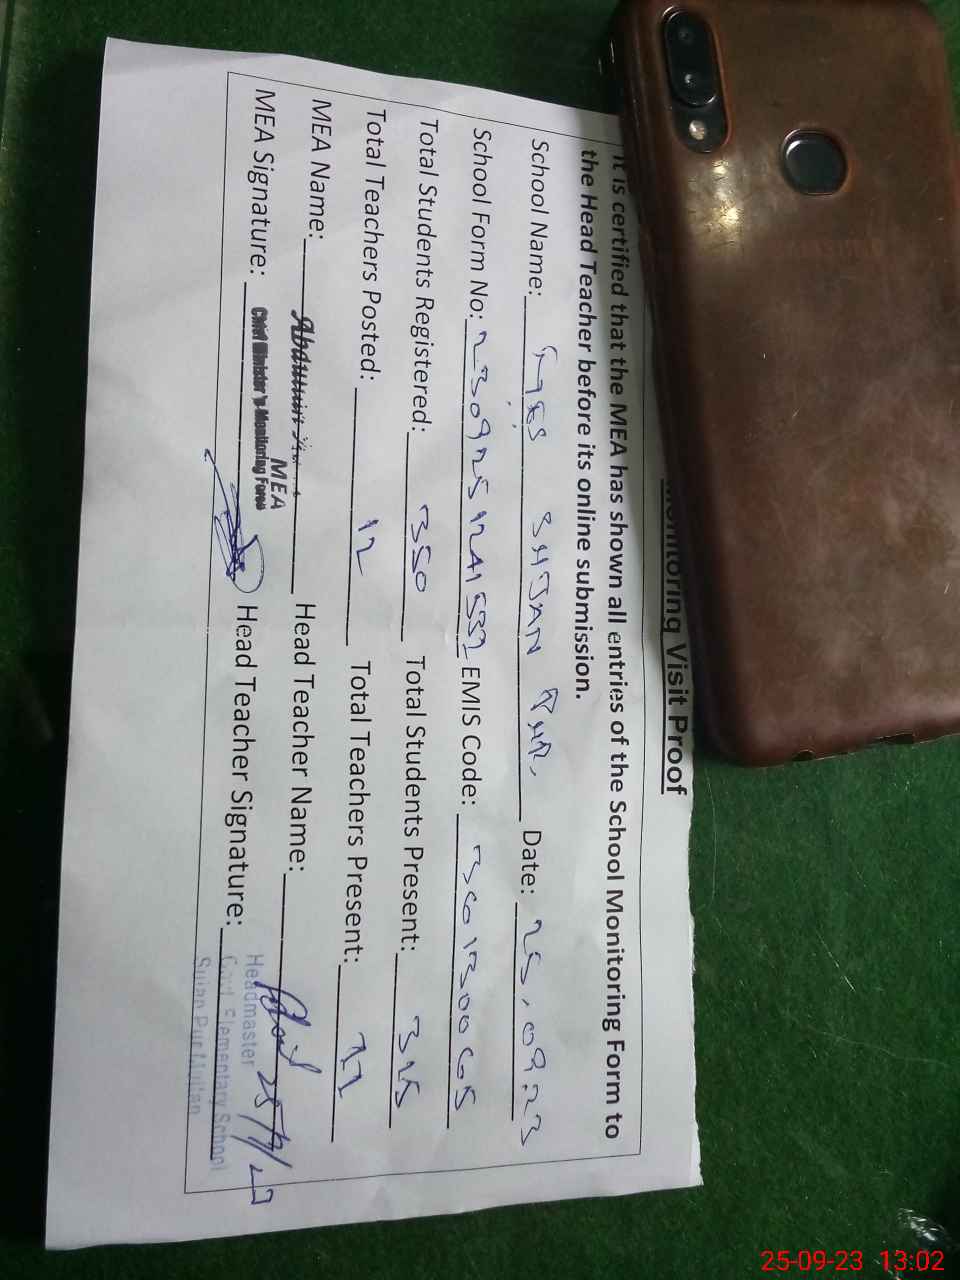 Monitoring Visit Proof
It is certified that the MEA has shown all entries of the School Monitoring Form to
the Head Teacher before its online submission.
School Name: SHJAN PUR. Date: 25.09.23
School Form No: EMIS Code:
Total Students Registered: 350 Total Students Present: 315
Total Teachers Posted: 12 Total Teachers Present:
MEA Name: Head Teacher Name:
MEA
Chief Minister's Monitoring Force
MEA Signature: Head Teacher Signature:
Headmaster
Govt Elementary School
SAMSUNG
25-09-23 13:02